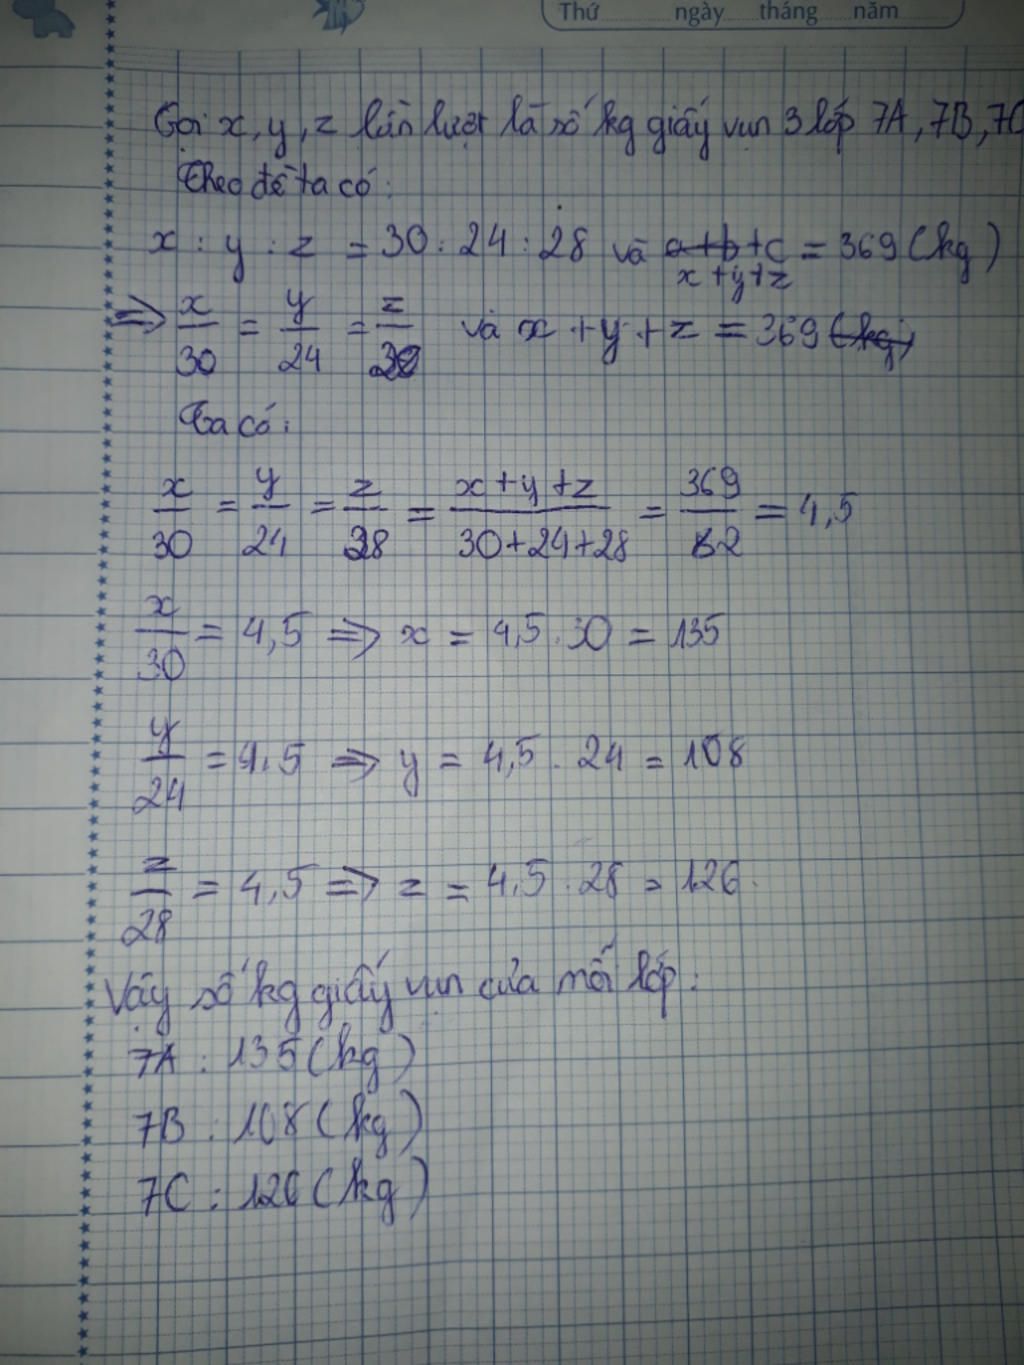 Thứ ngày tháng năm
Gọi x, y, z lần lượt là số kg giấy vụn 3 lớp 7A, 7B, 7C
Theo đề ta có:
x : y : z = 30 : 24 : 28 và a+b+c = 369 (kg)
x+y+z
=> x/30 = y/24 = z/28 và x + y + z = 369 (kg)
Ta có:
x/30 = y/24 = z/28 = x+y+z/30+24+28 = 369/82 = 4,5
x/30 = 4,5 => x = 4,5 . 30 = 135
y/24 = 4,5 => y = 4,5 . 24 = 108
z/28 = 4,5 => z = 4,5 . 28 = 126.
Vậy số kg giấy vụn của mỗi lớp:
7A : 135 (kg)
7B : 108 (kg)
7C : 126 (kg)